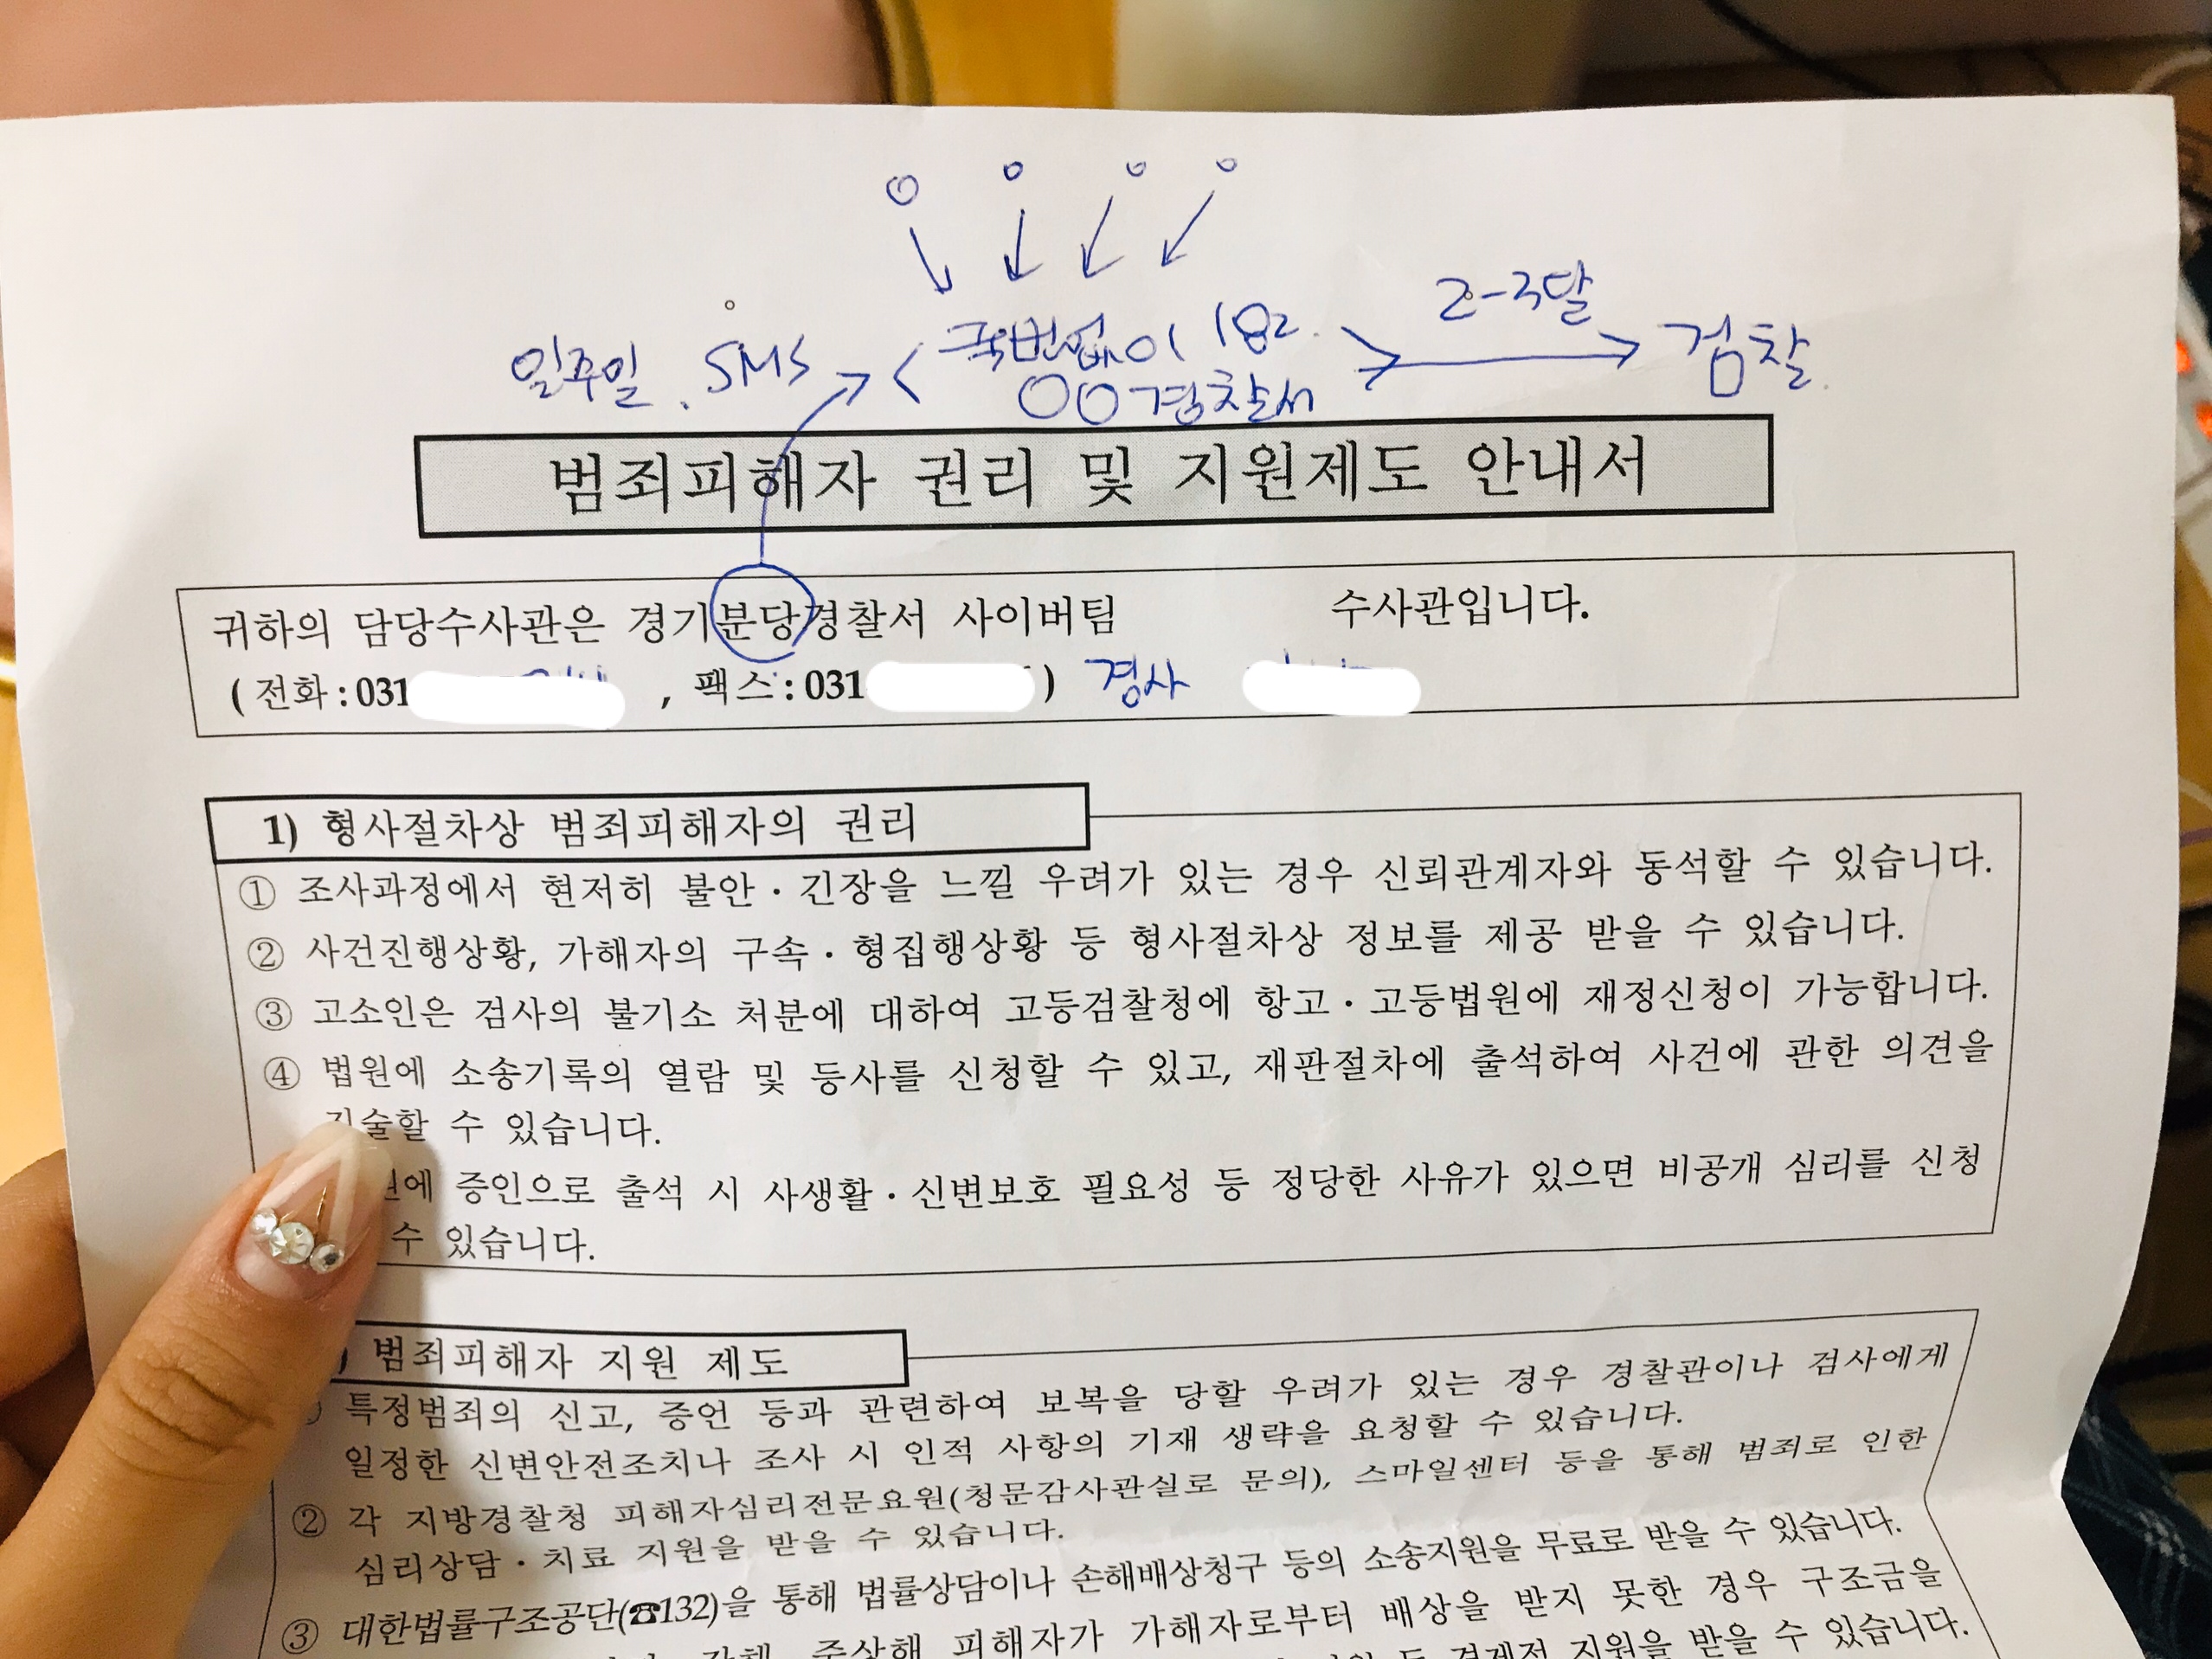 2-3달
일주일. SMS < 국번없이 182. > → 검찰.
OO경찰서
범죄피해자 권리 및 지원제도 안내서
귀하의 담당수사관은 경기분당경찰서 사이버팀 수사관입니다.
(전화:031 , 팩스:031 ) 경사
1) 형사절차상 범죄피해자의 권리
① 조사과정에서 현저히 불안·긴장을 느낄 우려가 있는 경우 신뢰관계자와 동석할 수 있습니다.
② 사건진행상황, 가해자의 구속·형집행상황 등 형사절차상 정보를 제공 받을 수 있습니다.
③ 고소인은 검사의 불기소 처분에 대하여 고등검찰청에 항고·고등법원에 재정신청이 가능합니다.
④ 법원에 소송기록의 열람 및 등사를 신청할 수 있고, 재판절차에 출석하여 사건에 관한 의견을
진술할 수 있습니다.
증인으로 출석 시 사생활·신변보호 필요성 등 정당한 사유가 있으면 비공개 심리를 신청
수 있습니다.
범죄피해자 지원 제도
특정범죄의 신고, 증언 등과 관련하여 보복을 당할 우려가 있는 경우 경찰관이나 검사에게
일정한 신변안전조치나 조사 시 인적 사항의 기재 생략을 요청할 수 있습니다.
② 각 지방경찰청 피해자심리전문요원(청문감사관실로 문의), 스마일센터 등을 통해 범죄로 인한
심리상담·치료 지원을 받을 수 있습니다.
③ 대한법률구조공단(☎132)을 통해 법률상담이나 손해배상청구 등의 소송지원을 무료로 받을 수 있습니다.
중상해 피해자가 가해자로부터 배상을 받지 못한 경우 구조금을
등 경제적 지원을 받을 수 있습니다.